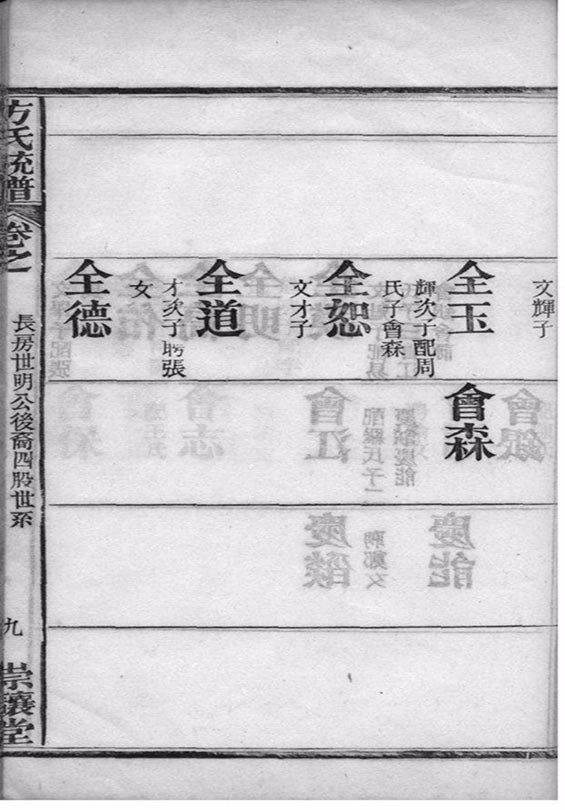 文輝子
全玉
輝次子配周
氏子會森
會森
全恕
文才子
全道
才次子聘張
女
全德
方氏統譜
卷之
長房世明公後裔四股世系
九
崇讓堂